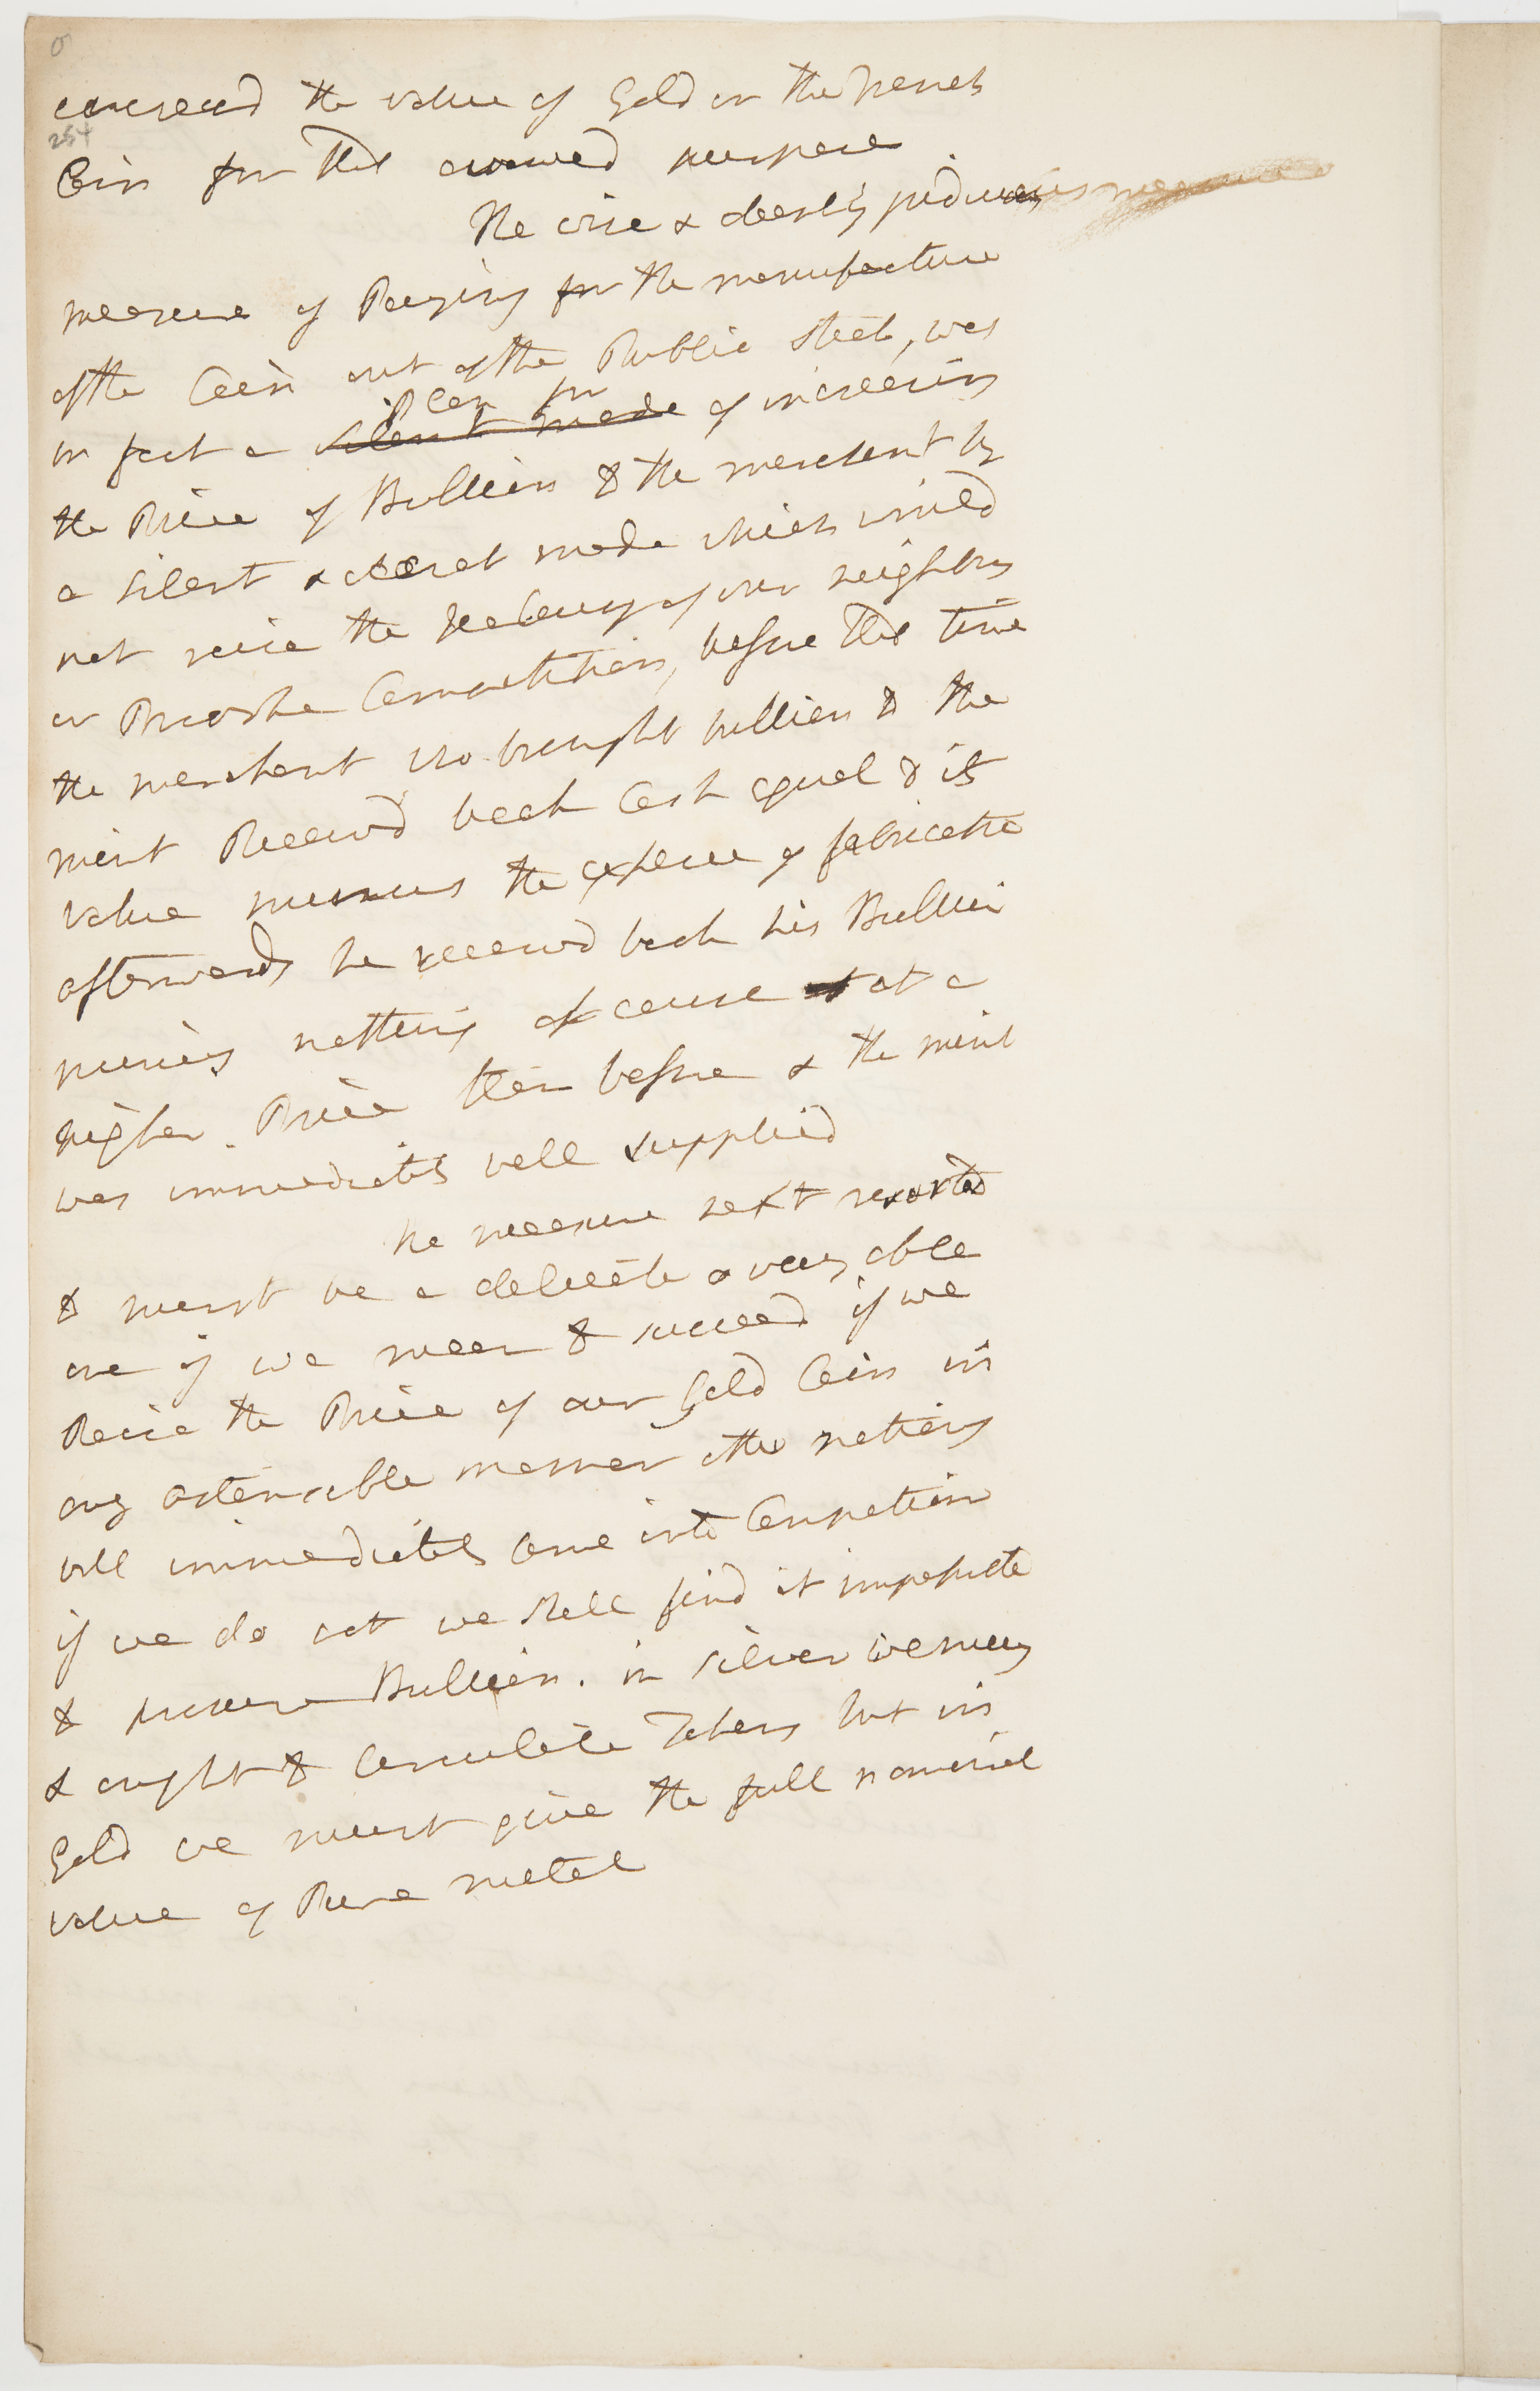 encreasd the value of Gold in the french
254
Coin for this avowed purpose
The wise & cleerly judicious measure
measure of Paying for the manufacture
of the Coin out of the Public stock, was
Plan for
in fact a silent mode of increasing
the Price of Bullion to the merchant by
a silent & secret mode which would
not raise the Jealousy of our neighbors
or Provoke Competition, before this time
the merchant who brought bullion to the
mint Receivd back Cash equal to its
value minus the expence of fabricatio
afterwards he receivd back his Bullion
minus nothing of cause at a
higher Price then before & the mint
was immediatly well supplied
the measure next resorted
to must be a delicate & very able
one if we mean to succeed if we
Raise the Price of our Gold Coin in
any ostensible manner other nations
will immediatly Come into Competition
if we do not we shall find it impossible
to procure Bullion. in silver we may
& ought to Circulate Tokens but in
Gold we must give the full nominal
value of Pure metal